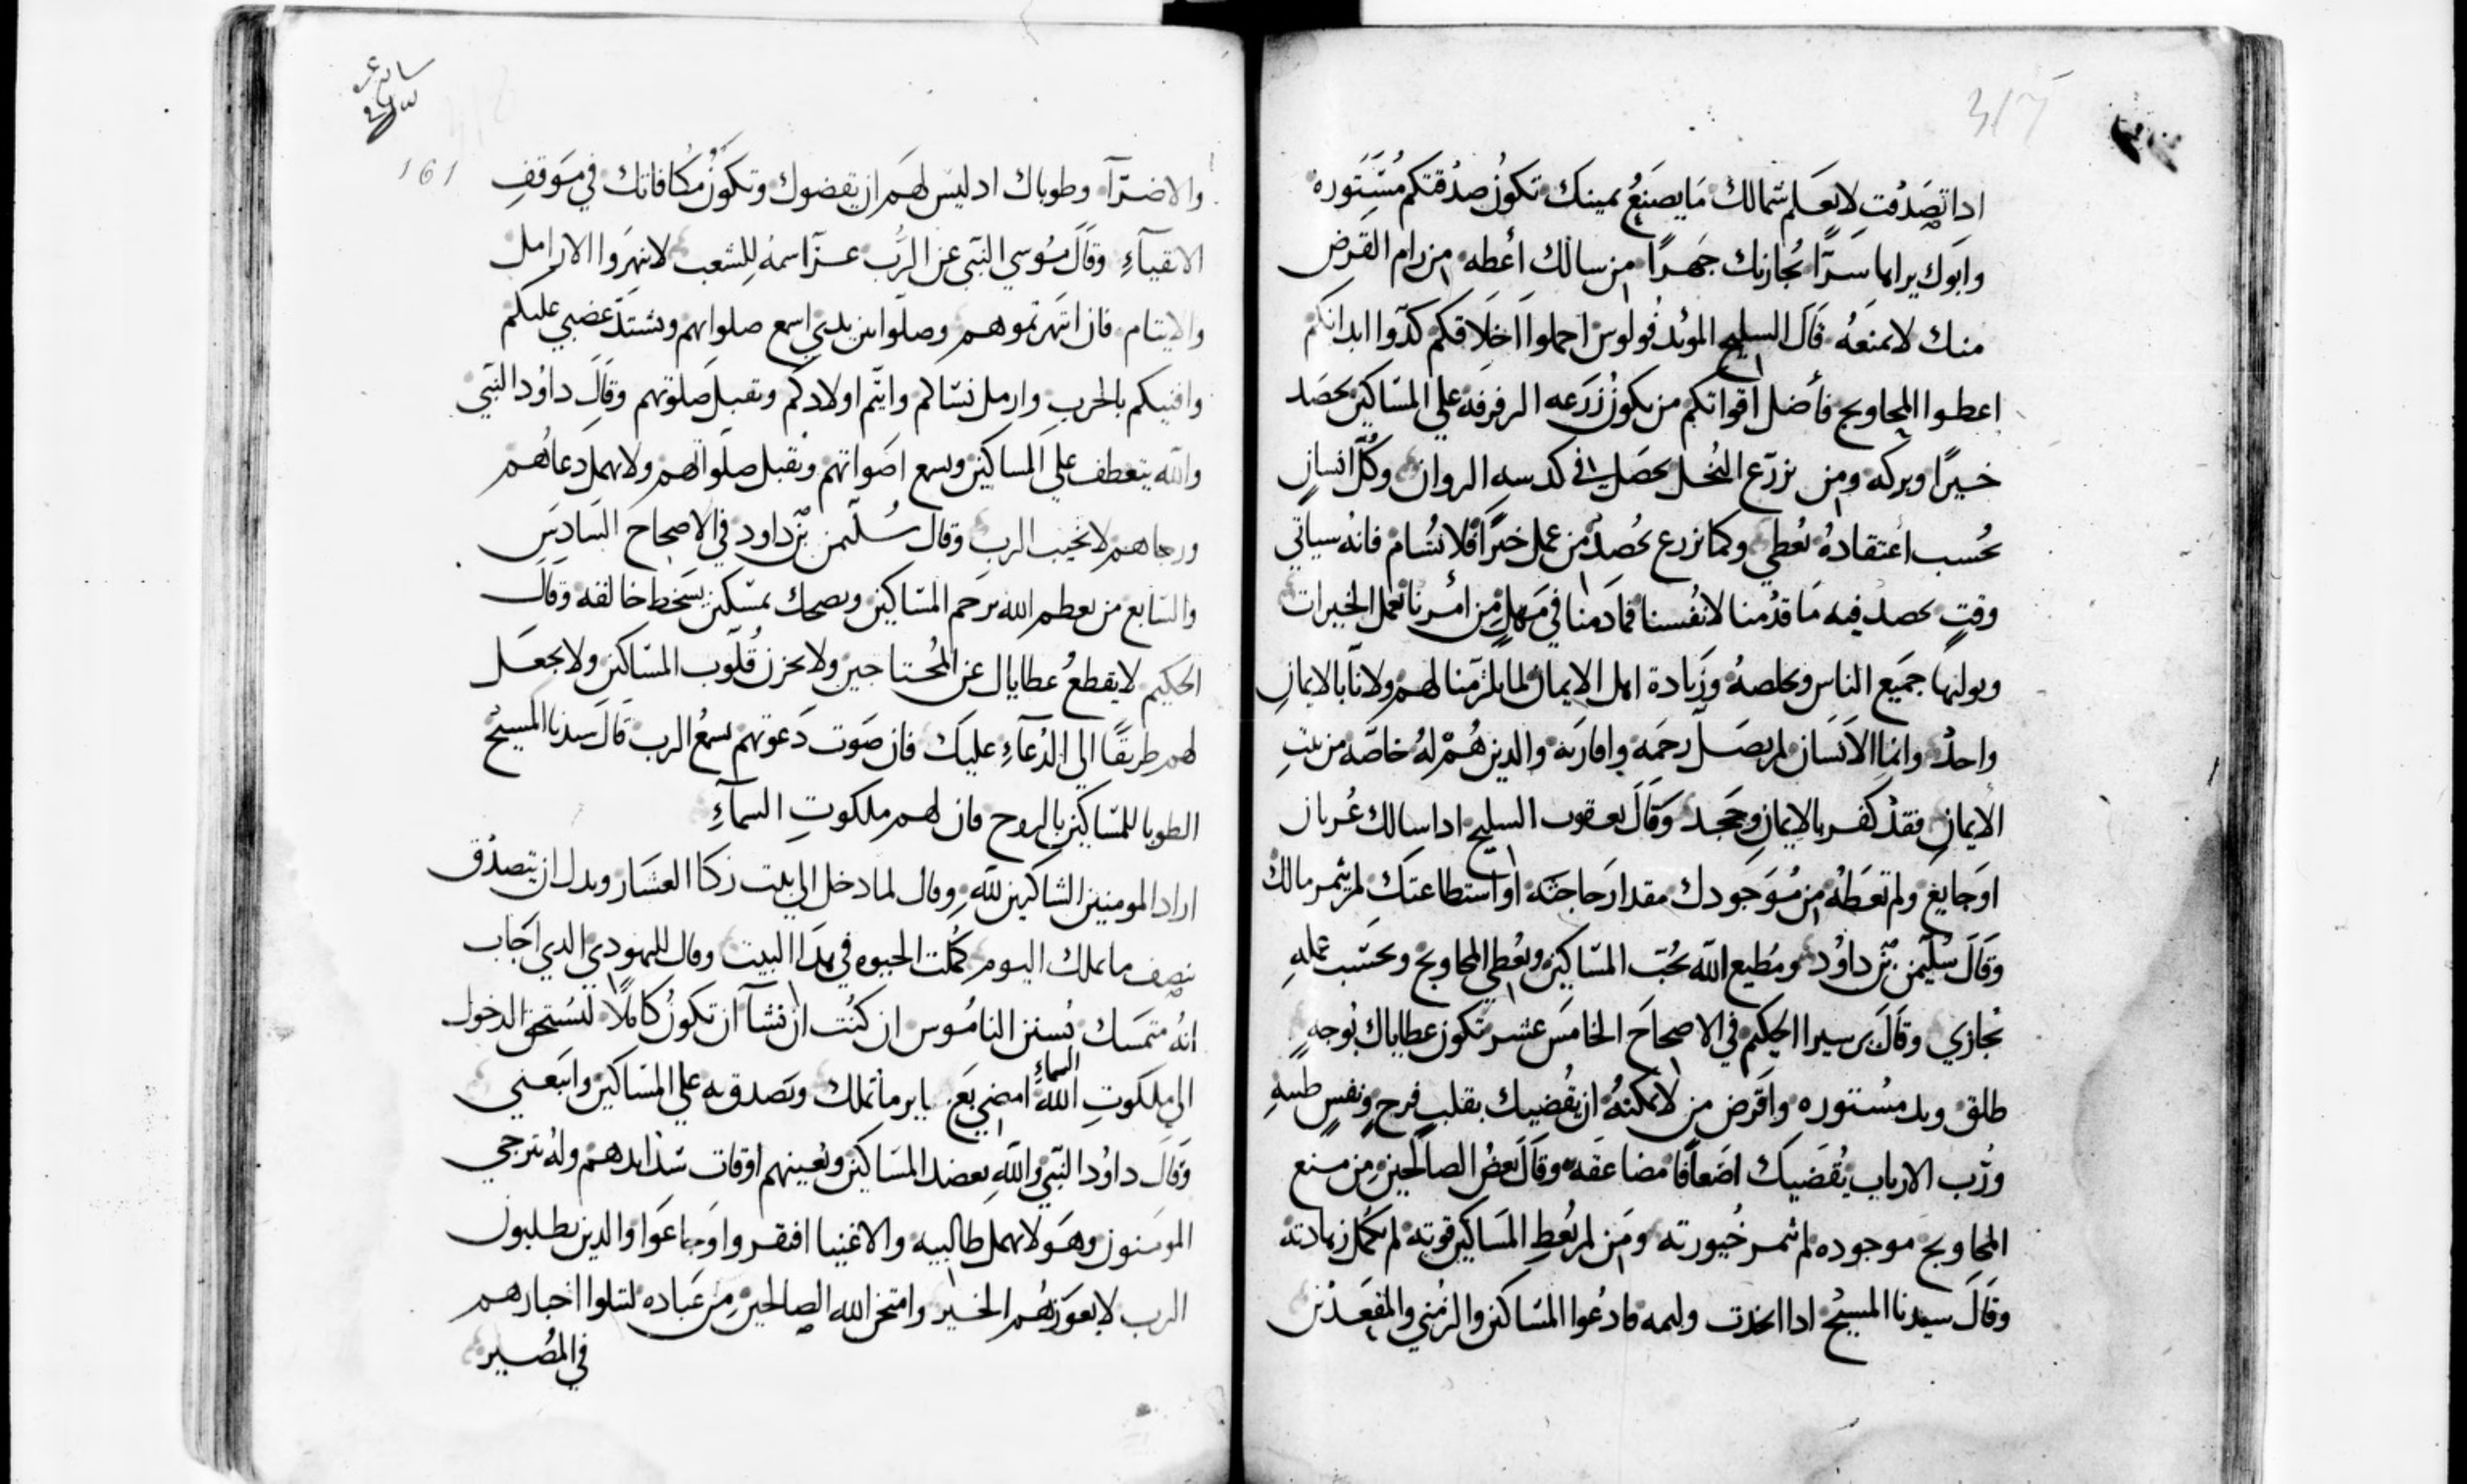 317
ادا تصدقت لا يعلم شمالك ما يصنع يمينك تكون صدقتكم مستوره
وابوك يراها سرا يجازيك جهرا من سالك أعطه من رام القرض
منك لا تمنعه قال السليح المؤيد فولوس اجملوا اخلاقكم كدوا ابدانكم
اعطوا المحاويج فأضل اقواتكم من يكون زرعه الرفرفة علي المساكين يحصد
خيرا وبركه ومن يزرع البخل يحصل في كدسه الزوان وكل انسان
بحسب اعتقاده يعطي وكما يزرع يحصد من عمل خيرا فلا يسام فانه سياتي
وقت يحصد فيه ما قدمنا لانفسنا فما دمنا في مهل من امرنا نعمل الخيرات
ونوليها جميع الناس ونخلصه وزيادة اهل الايمان لما يلزمنا لهم ولانا بالايمان
واحد وانما الانسان لم يصل رحمه واقاربه والدين هم له خاصه من بيت
الايمان فقد كفر بالايمان وجحد وقال يعقوب السليح ادا سالك عريان
او جايع ولم تعطه من موجودك مقدار حاجته او استطاعتك لم يثمر مالك
وقال سليمن بن داود ومطيع الله يحب المساكين ويعطي المحاويج وبحسب عمله
يجازي وقال بر سيرا الحكيم في الاصحاح الخامس عشر تكون عطاياك بوجه
طلق ويد مستوره واقرض من لا يمكنه ان يقضيك بقلب فرح ونفس طيبه
ورب الارباب يقضيك اضعافا مضاعفه وقال بعض الصالحين من منع
المحاويج موجوده لم يثمر خيورته ومن لم يعط المساكين قوته لم تكمل زيادته
وقال سيدنا المسيح ادا اتخذت وليمه فادعوا المساكين والزمني والمقعدين
161
والاضرآء وطوباك اد ليس لهم ان يقضوك وتكون مكافاتك في موقف
الاتقيآء وقال موسي النبي عن الرب عز اسمه للشعب لا تنهروا الارامل
والايتام فان انتهرتموهم وصلوا بين يدي اسمع صلواتهم ويشتد غضبي عليكم
وافنيكم بالحرب وارمل نساكم وايتم اولادكم وتقبل صلوتهم وقال داود النبي
والله يتعطف علي المساكين ويسمع اصواتهم ويقبل صلواتهم ولا يهمل دعائهم
ورجاهم لا يخيب الرب وقال سليمن بن داود في الاصحاح السادس
والسابع من يعظم الله يرحم المساكين ويضحك بمسكين يسخط خالقه وقال
الحكيم لا يقطع عطاياك عن المحتاجين ولا تحزن قلوب المساكين ولا تجعل
لهم طريقا الي الدعآء عليك فان صوت دعوتهم يسمع الرب قال سيدنا المسيح
الطوبا للمساكين بالروح فان لهم ملكوت السمآء
اراد المومنين الشاكرين لله وقال لما دخل الي بيت زكا العشار وبدل ان يتصدق
بنصف ما يملك اليوم كملت الحيوه في هدا البيت وقال لليهودي الدي اجاب
انه متمسك بسنن الناموس ان كنت ان تشآ ان تكون كاملا لتستحق الدخول
الي ملكوت الله السماء امضي بع باير ما تملك وتصدق به علي المساكين واتبعني
وقال داود النبي والله يعضد المساكين ويعينهم اوقات شدايدهم وله يترجي
المومنون وهو لا يهمل طالبيه والاغنيا افتقروا وجاعوا والدين يطلبون
الرب لا يعوزهم الخير وامتحن الله الصالحين من عباده لتتلوا اخبارهم
في المصير